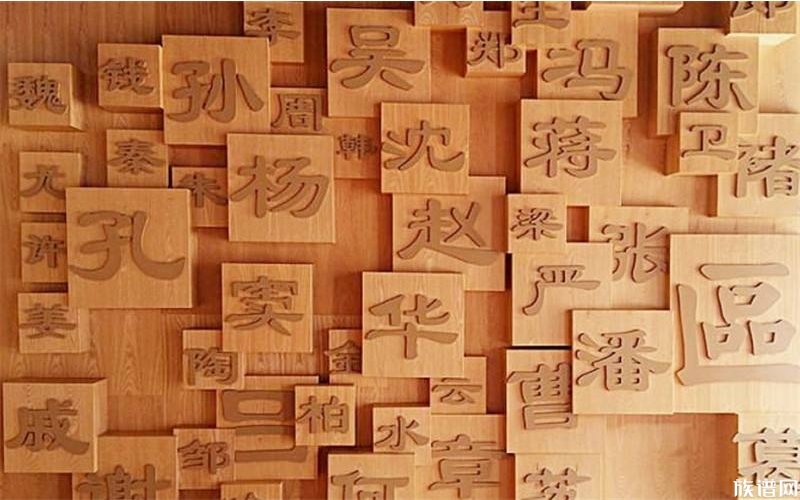 李
吴
王
郑
冯
陈
郎
魏
钱
孙
周
韩
沈
蒋
卫
褚
尤
秦
朱
杨
孔
赵
梁
张
许
严
區
姜
窦
华
潘
陶
金
云
曹
戚
吕
柏
水
邹
谢
何
章
苏
葛
族谱网